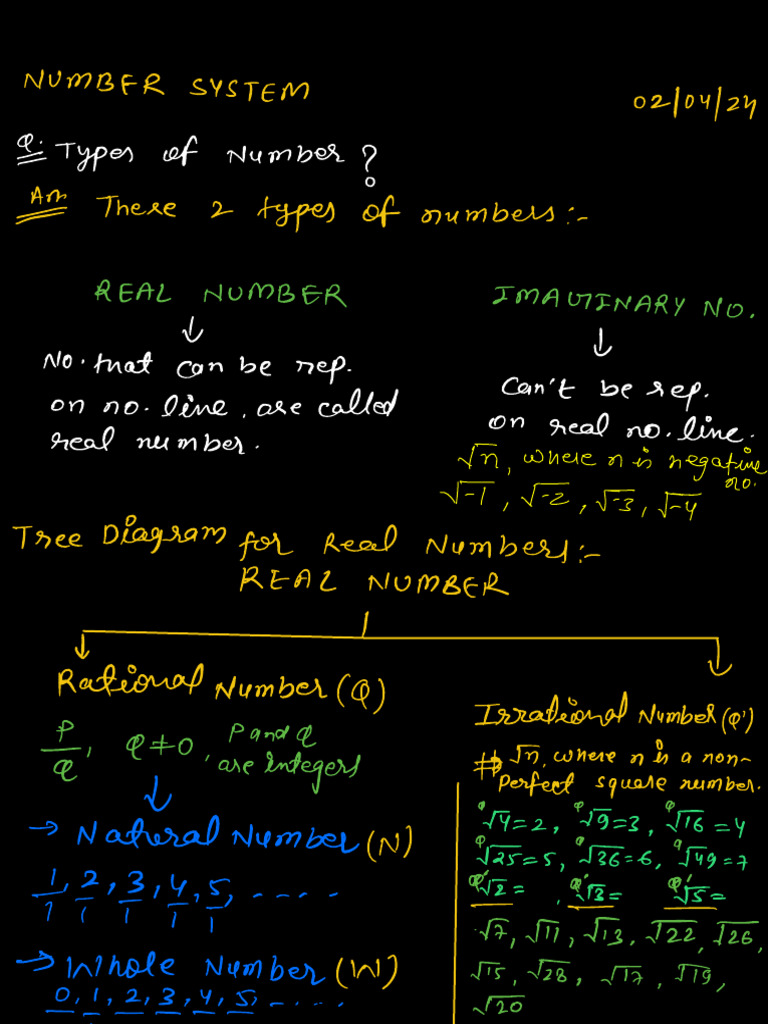 NUMBER SYSTEM
02/04/24
Q. Types of Number?
Ans There 2 types of numbers:-
REAL NUMBER
No. that can be rep.
on no. line, are called
real number.
IMAGINARY NO.
Can't be rep.
on real no. line.
√n, where n is negative
no.
√-1, √-2, √-3, √-4
Tree Diagram for Real Numbers:-
REAL NUMBER
Rational Number (Q)
P/Q, Q≠0, P and Q
are integers
→ Natural Number (N)
1/1, 2/1, 3/1, 4/1, 5/1, ....
→ Whole Number (W)
0, 1, 2, 3, 4, 5, - ....
Irrational Number (Q')
# √n, where n is a non-
perfect square number.
Q √4=2, Q √9=3, Q √16=4
Q √25=5, Q √36=6, Q √49=7
Q' √2=, Q' √3=, Q' √5=
√7, √11, √13, √22, √26,
√15, √28, √17, √19,
√20